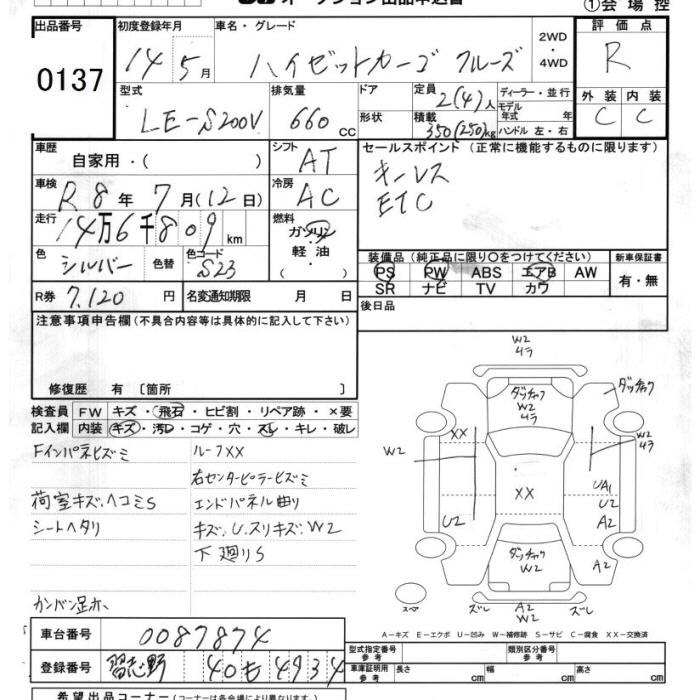 オークション出品申込書
①会場控
出品番号 0137
初度登録年月 14年5月
車名・グレード ハイゼットカーゴ クルーズ
2WD・4WD
評価点 R
外装 C 内装 C
型式 LE-S200V
排気量 660cc
ドア 形状
定員 2(4)人
積載 350(250)kg
ディーラー・並行
モデル年式 年
ハンドル 左・右
車歴 自家用・( )
シフト AT
セールスポイント (正常に機能するものに限ります)
キーレス
ETC
車検 R8年7月(12日)
冷房 AC
走行 14万6千809km
燃料 ガソリン 軽油・
色 シルバー 色替
色コード S23
装備品 (純正品に限り○をつけてください)
PS PW ABS エアB AW
SR ナビ TV カワ
新車保証書 有・無
R券 7,120円
名変通知期限 月 日
後日品
注意事項申告欄 (不具合内容等は具体的に記入して下さい)
修復歴 有 [箇所 ]
検査員記入欄
FW キズ・飛石・ヒビ割・リペア跡・×要
内装 キズ・汚レ・コゲ・穴・スレ・キレ・破レ
Fインパネヒズミ
ルーフXX
右センターピラーヒズミ
荷室キズ.ヘコミS
エンドパネル曲り
シートヘタリ
キズ、U.スリキズ.W2
下廻りS
カンバン足ホ
W2
4ラ
ダッチャク
W2
4ラ
ダッチャク
XX
W2
W2
4ラ
XX
UA1
U2
U2
A2
ダッチャク
W2
A2
スペア
ズレ
A2
W2
ズレ
A-キズ E-エクボ U-凹み W-補修跡 S-サビ C-腐食 XX-交換済
車台番号 0087874
登録番号 習志野 40も4934
型式指定番号 参考
類別区分番号 参考
車庫証明用 参考 長さ cm 幅 cm 高さ cm
希望出品コーナー (コーナーは各会場により異なります)